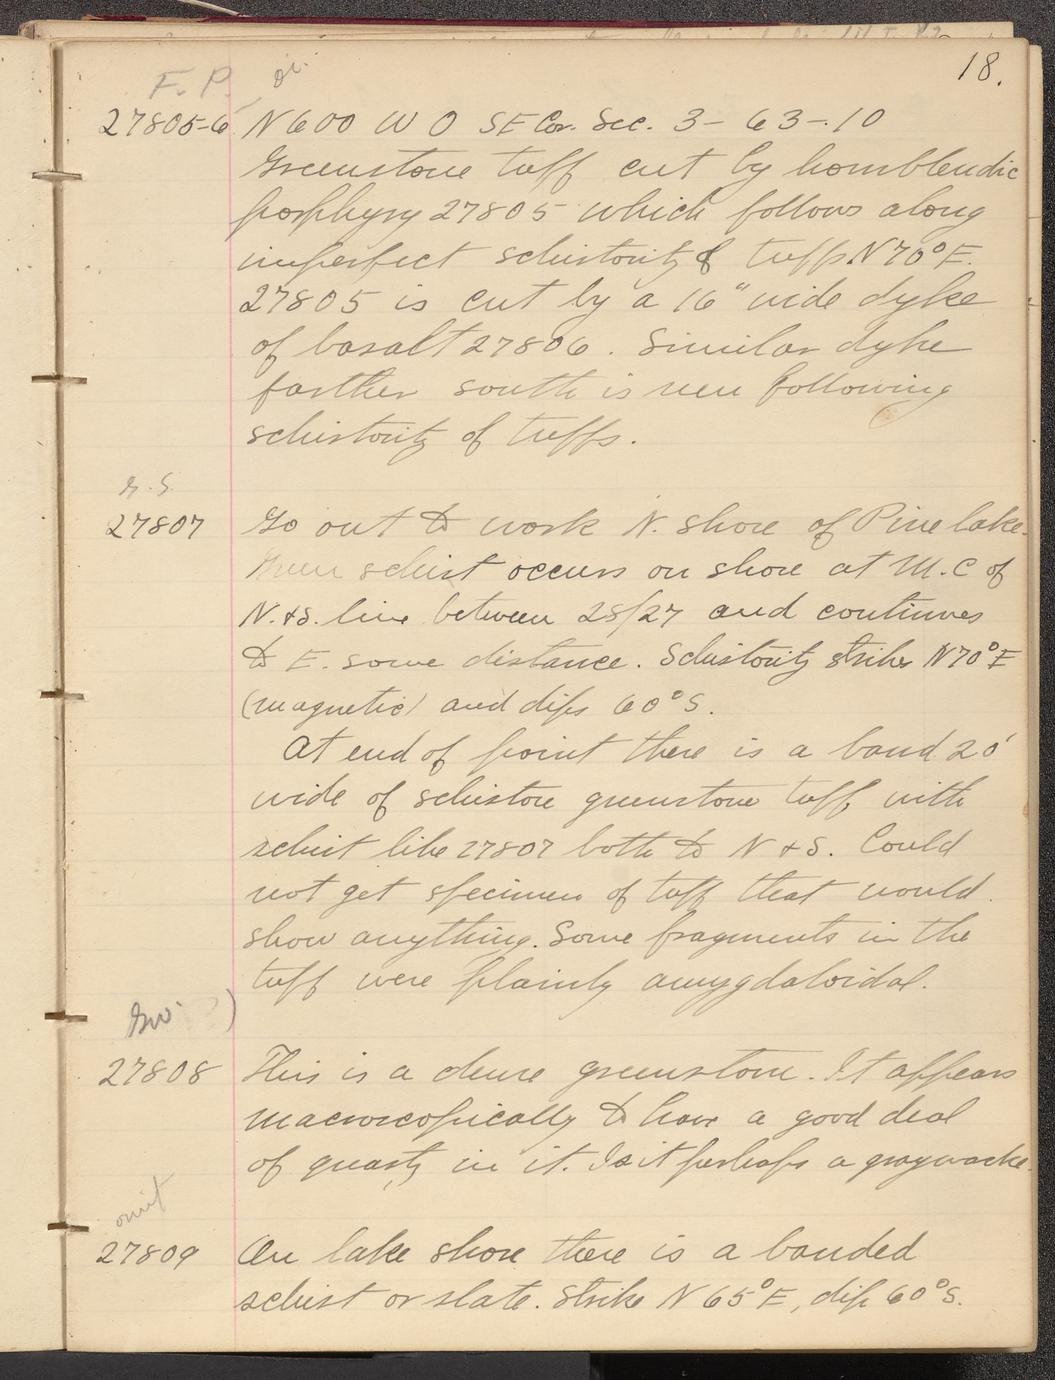 18.
F. P. di.
27805-6 N 600 W 0 SE Cor. Sec. 3 - 63 - 10
Greenstone tuff cut by hornblendic
porphyry 27805 which follows along
imperfect schistosity of tuffs N 70° E.
27805 is cut by a 16" wide dyke
of basalt 27806. Similar dyke
farther south is seen following
schistosity of tuffs.
G. S.
27807 Go out to work N. shore of Pine lake.
Green schist occurs on shore at M.C of
N. & S. line between 28/27 and continues
to E. some distance. Schistosity strikes N 70° E
(magnetic) and dips 60° S.
At end of point there is a band 20'
wide of schistose greenstone tuff with
schist like 27807 both to N & S. Could
not get specimen of tuff that would
show anything. Some fragments in the
tuff were plainly amygdaloidal.
Gw )
27808 This is a dense greenstone. It appears
macroscopically to have a good deal
of quartz in it. Is it perhaps a graywacke.
omit
27809 On lake shore there is a banded
schist or slate. Strike N 65° E, dip 60° S.